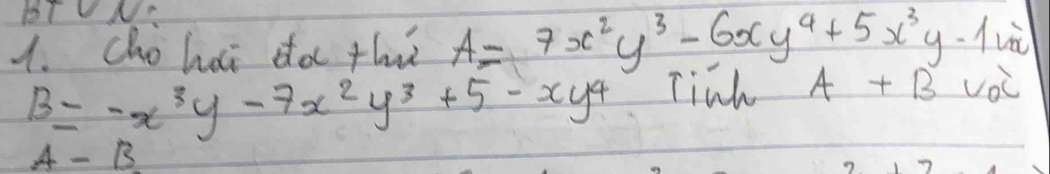 BTVN:
1. Cho hai đa thứ A = 7x²y³ - 6xy⁴ + 5x³y - 1 và
B = -x³y - 7x²y³ + 5 - xy⁴. Tính A + B và
A - B